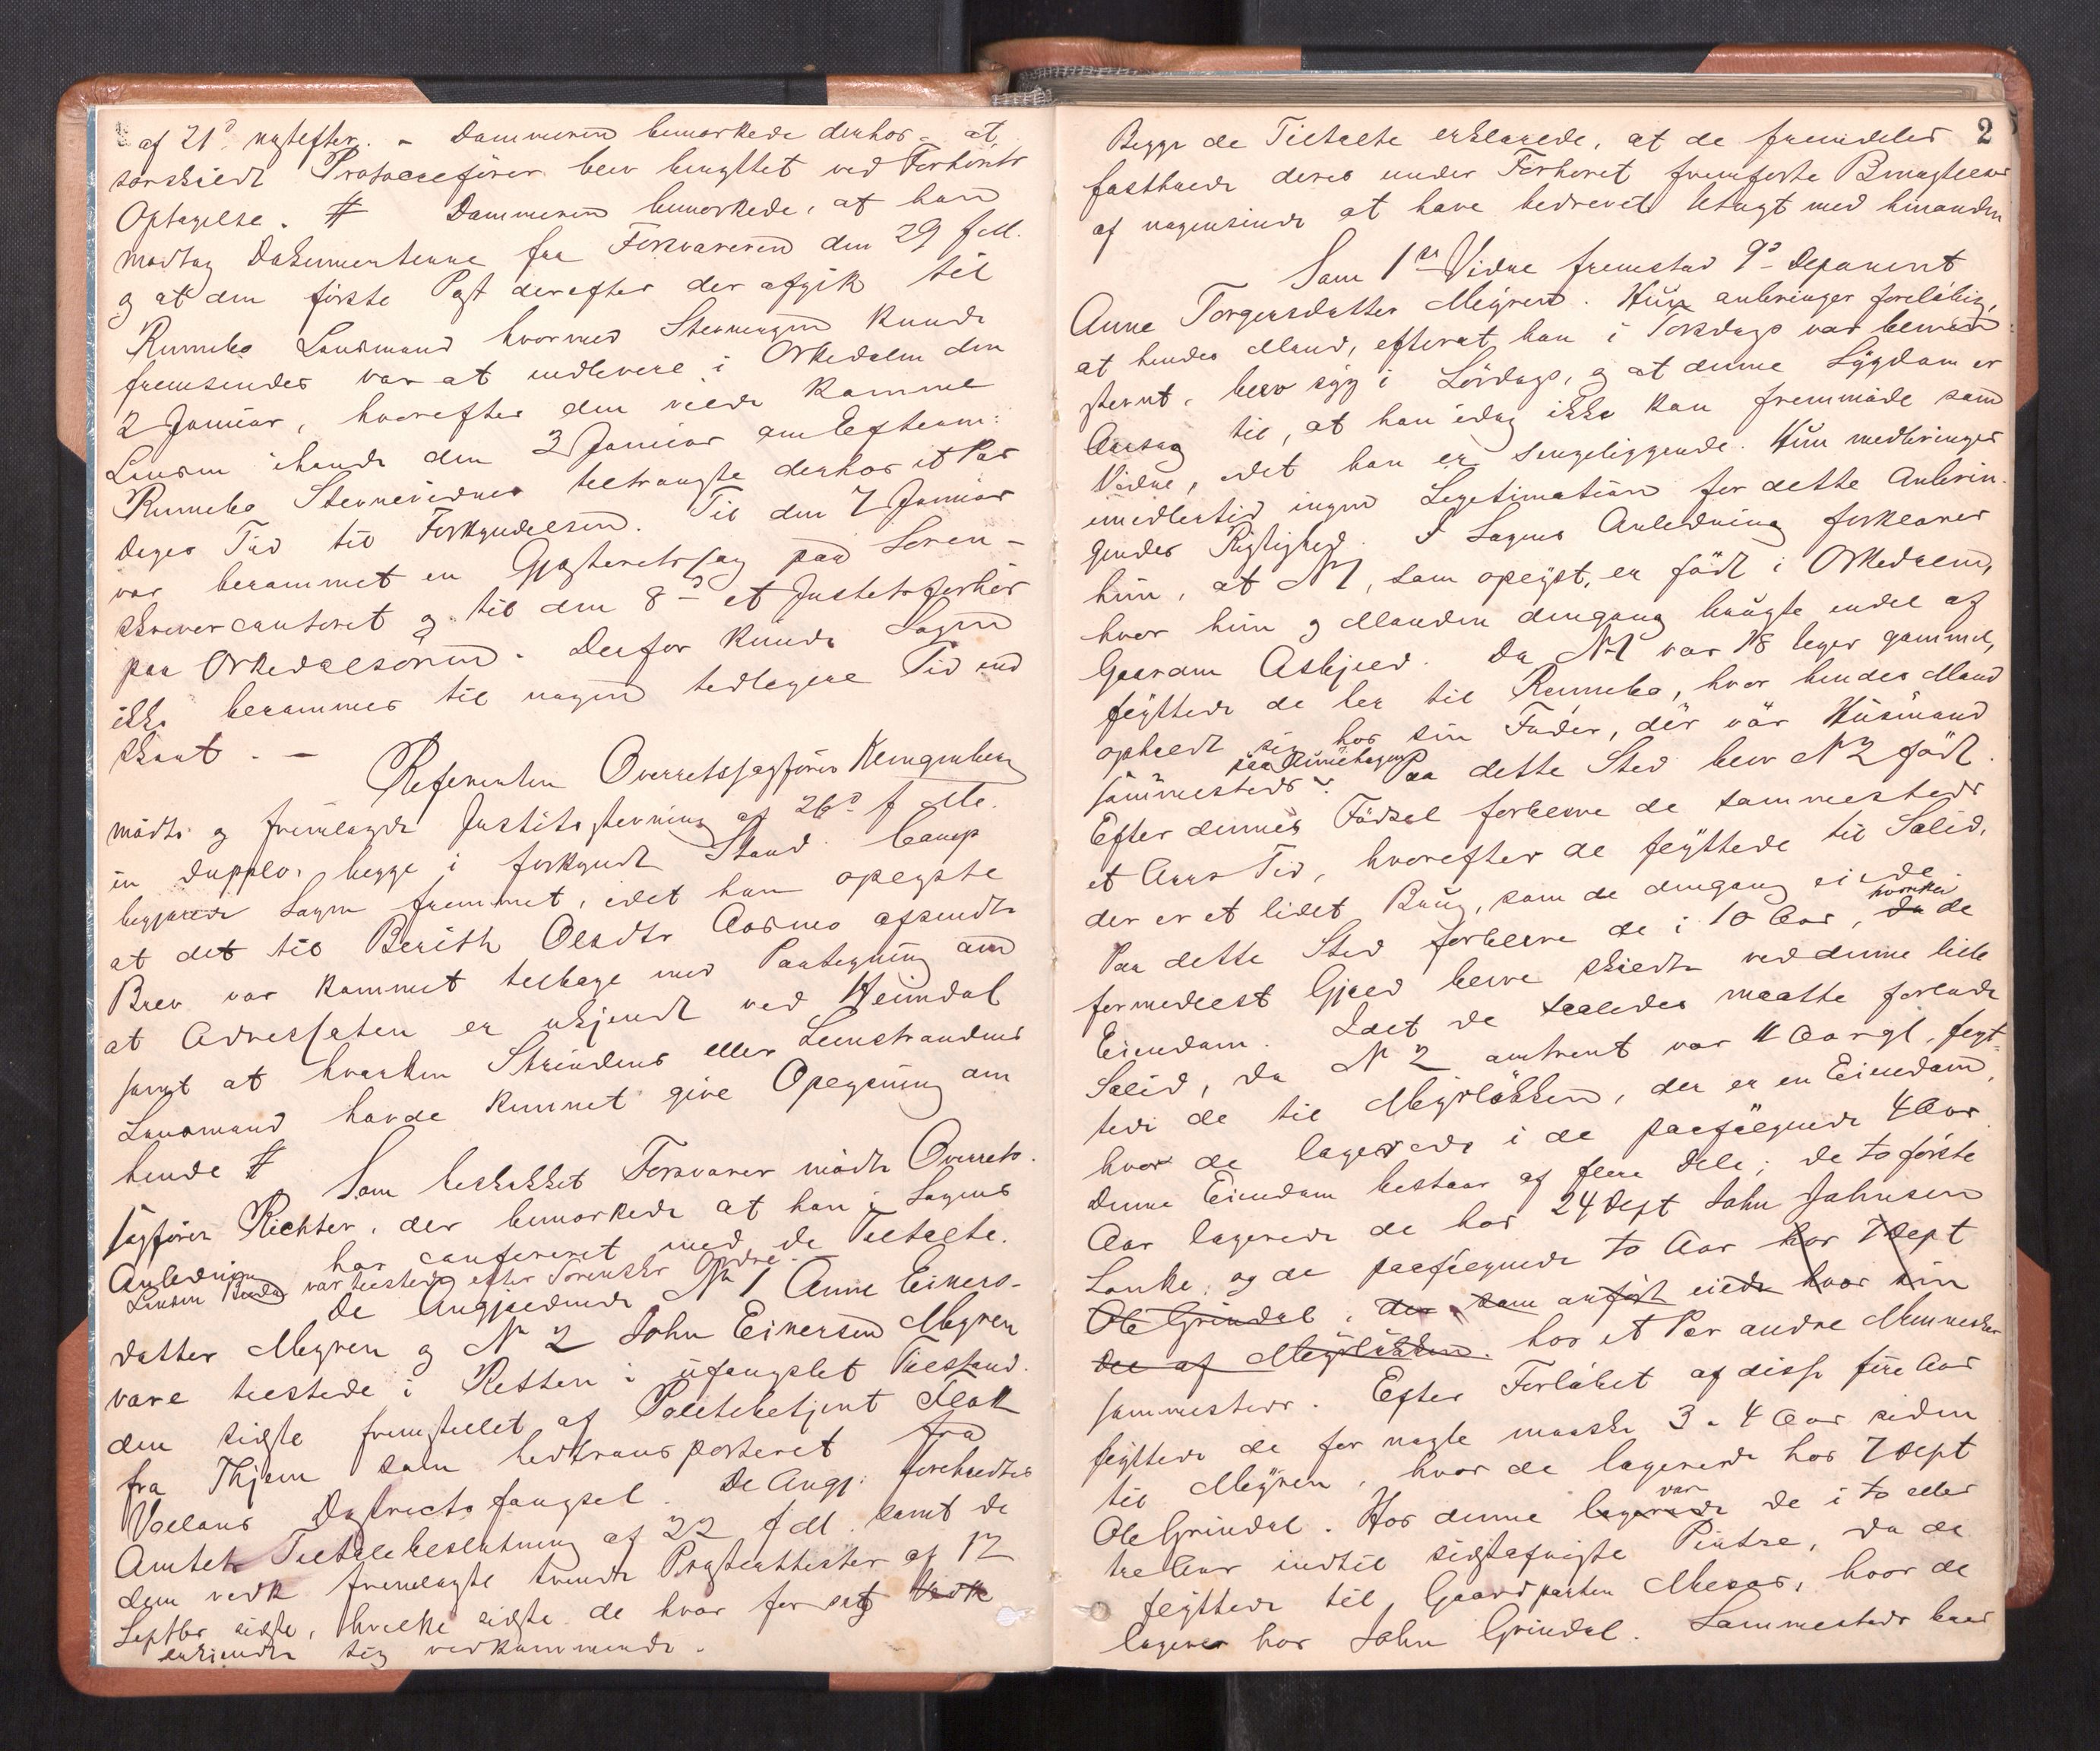 af 21de næstefter. - Dommeren bemærkede derhos - at
særskildt Protocolfører blev benyttet ved Forhørets
Optagelse. # Dommeren bemærkede, at han
modtog Dokumenterne fra Forsvareren den 29 f.M.
og at den første Post derefter der afgik til
Rennebo Lensmand hvormed Stevningen kunde
fremsendes var at indlevere i Orkedalen den
2 Januar, hvorefter den vilde komme
Lensm ihænde den 3 Januar om Efterm:
Rennebo Stevnevidner tiltrængte derhos et Par
Dages Tid til Forkyndelsen. Til den 7 Januar
var berammet en Gjæsteretssag paa Soren-
skrivercontoret og til den 8de et Justitsforhør
paa Orkedalsøren. Derfor kunde Sagen
ikke berammes til nogen tidligere Tid end
skeet. -
Referenten Overretssagfører Klingenberg
mødte og fremlagde Justitsstevning af 26de f Mr.
in duplo, begge i forkyndt Stand. Comp
begjærede Sagen fremmet, idet han oplyste
at det til Berith Olsdtr Aasmo afsendte
Brev var kommet tilbage med Paategning om
at Adressaten er ukjendt ved Heimdal
samt at hverken Strindens eller Leinstrandens
Lensmand havde kunnet give Oplysning om
hende # Som beskikket Forsvarer mødte Overrets-
sagfører Richter, der bemærkede at han i Sagens
Anledning har confereret med de Tiltalte.
Lensm var tilstede efter Sorenskr Ordre.
De Angjældende No 1 Anne Einers-
datter Megren og No 2 John Einersen Megren
vare tilstede i Retten i ufængslet Tilstand.
den sidste fremstillet af Politibetjent Flak
fra Thjem som hidtransporteret fra
Vollans Districtsfængsel. De Angj: foreholdtes
Amtets Tiltalebeslutning af 22 f M. samt de
dem vedk fremlagte tvende Præsteattester af 12
Septbr sidstl, hvilke sidste de hver for sig vedk
erkjendte sig vedkommende.
2
Begge de Tiltalte erklærede, at de fremdeles
fastholde deres under Forhøret fremførte Benægtelser
af nogensinde at have bedrevet Utugt med hinanden
Som 1ste Vidne fremstod 9de Deponent
Anne Torgersdatter Megren. Hun anbringer foreløbig,
at hendes Mand, efterat han i Torsdags var bleven
stevnt, blev syg i Lørdags, og at denne Sygdom er
Aarsag til, at han idag ikke kan fremmøde som
Vidne, idet han er sengeliggende. Hun medbringer
imidlertid ingen Legitimation for dette Anbrin-
gendes Rigtighed. I Sagens Anledning forklarer
hun, at No 1, som oplyst, er født i Orkedalen,
hvor hun og Manden dengang brugte endel af
Gaarden Asbjeld. Da No 1 var 18 Uger gammel,
flyttede de her til Rennebo, hvor hendes Mand
opholdt sig hos sin Fader, der var Husmand
paa
sammesteds. Paa dette Sted blev No 2 født.
Efter dennes Fødsel forbleve de sammesteds
et Aars Tid, hvorefter de flyttede til Solid,
der er et lidet Brug, som de dengang eiede
Paa dette Sted forbleve de i 10 Aar, da hvorken de
formedelst Gjæld bleve skildte ved denne lille
Eiendom. Idet de saaledes maatte forlade
Solid, da No 2 omtrent var 11 Aar gl, flyt-
tede de til Megrløkken, der er en Eiendom,
hvor de logerede i de paafølgende 4 Aar
Denne Eiendom bestaar af flere Dele; de to første
Aar logerede de hos 24 Dept John Johnsen
Lønke, og de paafølgende to Aar hos 7 Dept
Ole Grindal, der som anført eiede hver sin
Del af Megrløkken. hos et Par andre Mennesker
sammesteds. Efter Forløbet af disse fire Aar
flyttede de for nogle maaske 3 a 4 Aar siden
til Megren, hvor de logerede hos 7 Dept
Ole Grindal. Hos denne logerede var de i to eller
tre Aar indtil sidstafvigte Pintse, da de
flyttede til Gaardparten Mesos, hvor de
logerer hos John Grindal. Sammesteds har